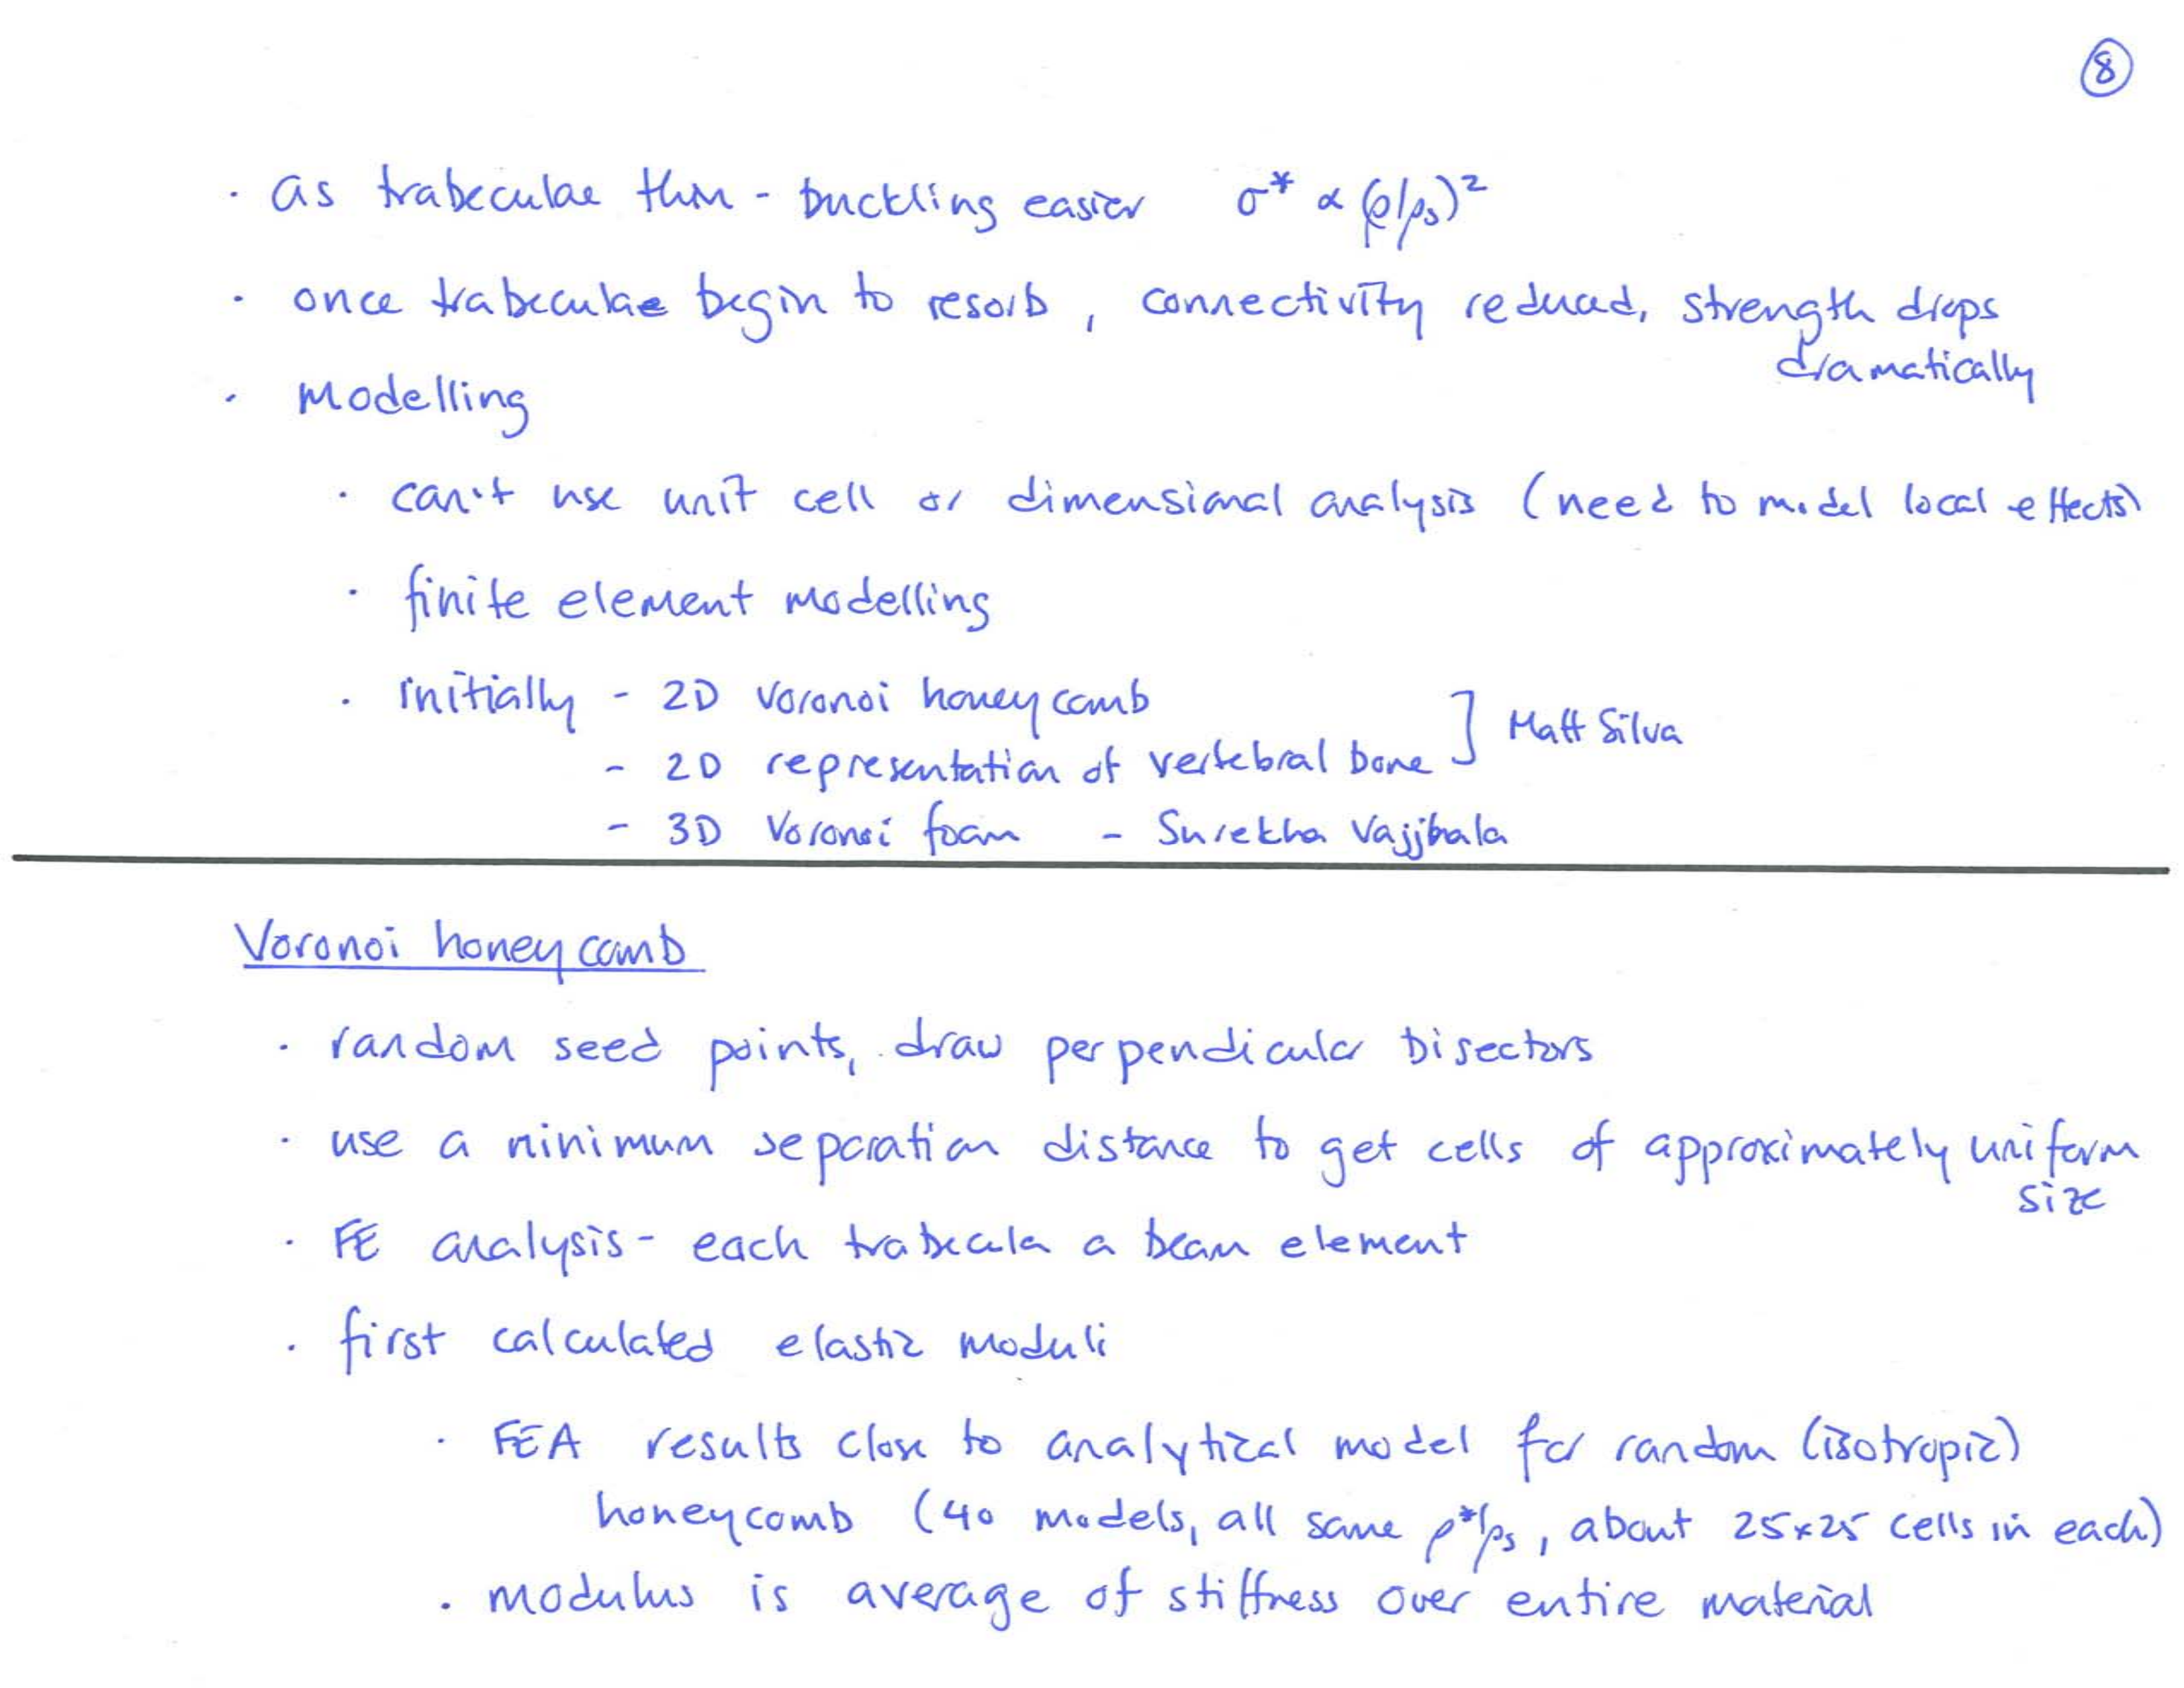 8
· as trabeculae thin - buckling easier σ* ∝ (ρ/ρs)²
· once trabeculae begin to resorb, connectivity reduced, strength drops
dramatically
· modelling
· can't use unit cell or dimensional analysis (need to model local effects)
· finite element modelling
· initially - 2D Voronoi honeycomb
- 2D representation of vertebral bone ] Matt Silva
- 3D Voronoi foam - Surekha Vajjhala
Voronoi honeycomb
· random seed points, draw perpendicular bisectors
· use a minimum separation distance to get cells of approximately uniform
size
· FE analysis - each trabecula a beam element
· first calculated elastic moduli
· FEA results close to analytical model for random (isotropic)
honeycomb (40 models, all same ρ*/ρs, about 25×25 cells in each)
· modulus is average of stiffness over entire material